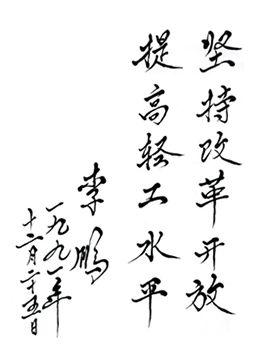 坚持改革开放
提高轻工水平
李鹏
一九九一年
十二月二十五日